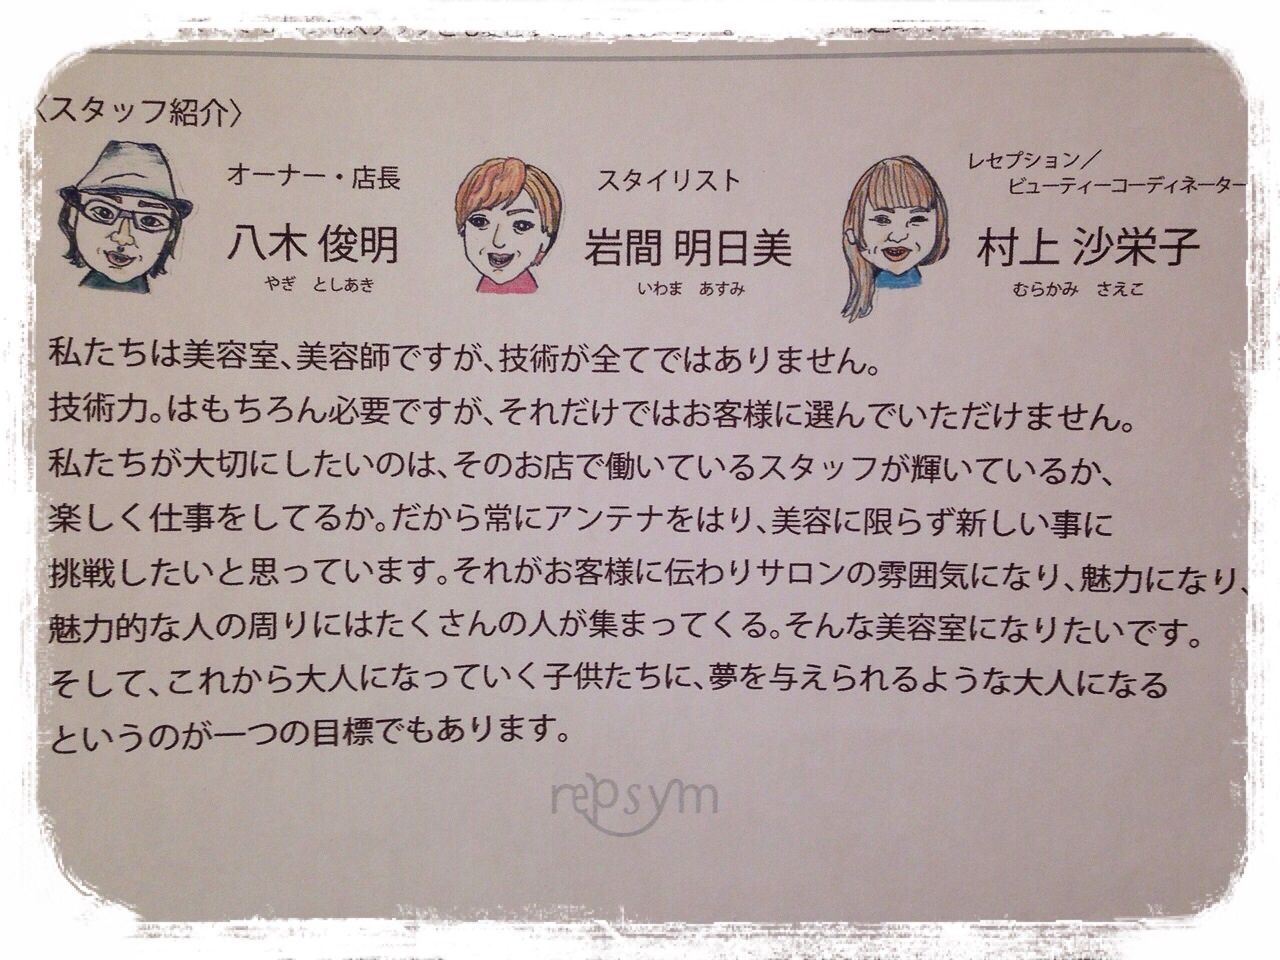 〈スタッフ紹介〉
オーナー・店長
八木 俊明
やぎ としあき
スタイリスト
岩間 明日美
いわま あすみ
レセプション／
ビューティーコーディネーター
村上 沙栄子
むらかみ さえこ
私たちは美容室、美容師ですが、技術が全てではありません。
技術力。はもちろん必要ですが、それだけではお客様に選んでいただけません。
私たちが大切にしたいのは、そのお店で働いているスタッフが輝いているか、
楽しく仕事をしてるか。だから常にアンテナをはり、美容に限らず新しい事に
挑戦したいと思っています。それがお客様に伝わりサロンの雰囲気になり、魅力になり、
魅力的な人の周りにはたくさんの人が集まってくる。そんな美容室になりたいです。
そして、これから大人になっていく子供たちに、夢を与えられるような大人になる
というのが一つの目標でもあります。
repsym